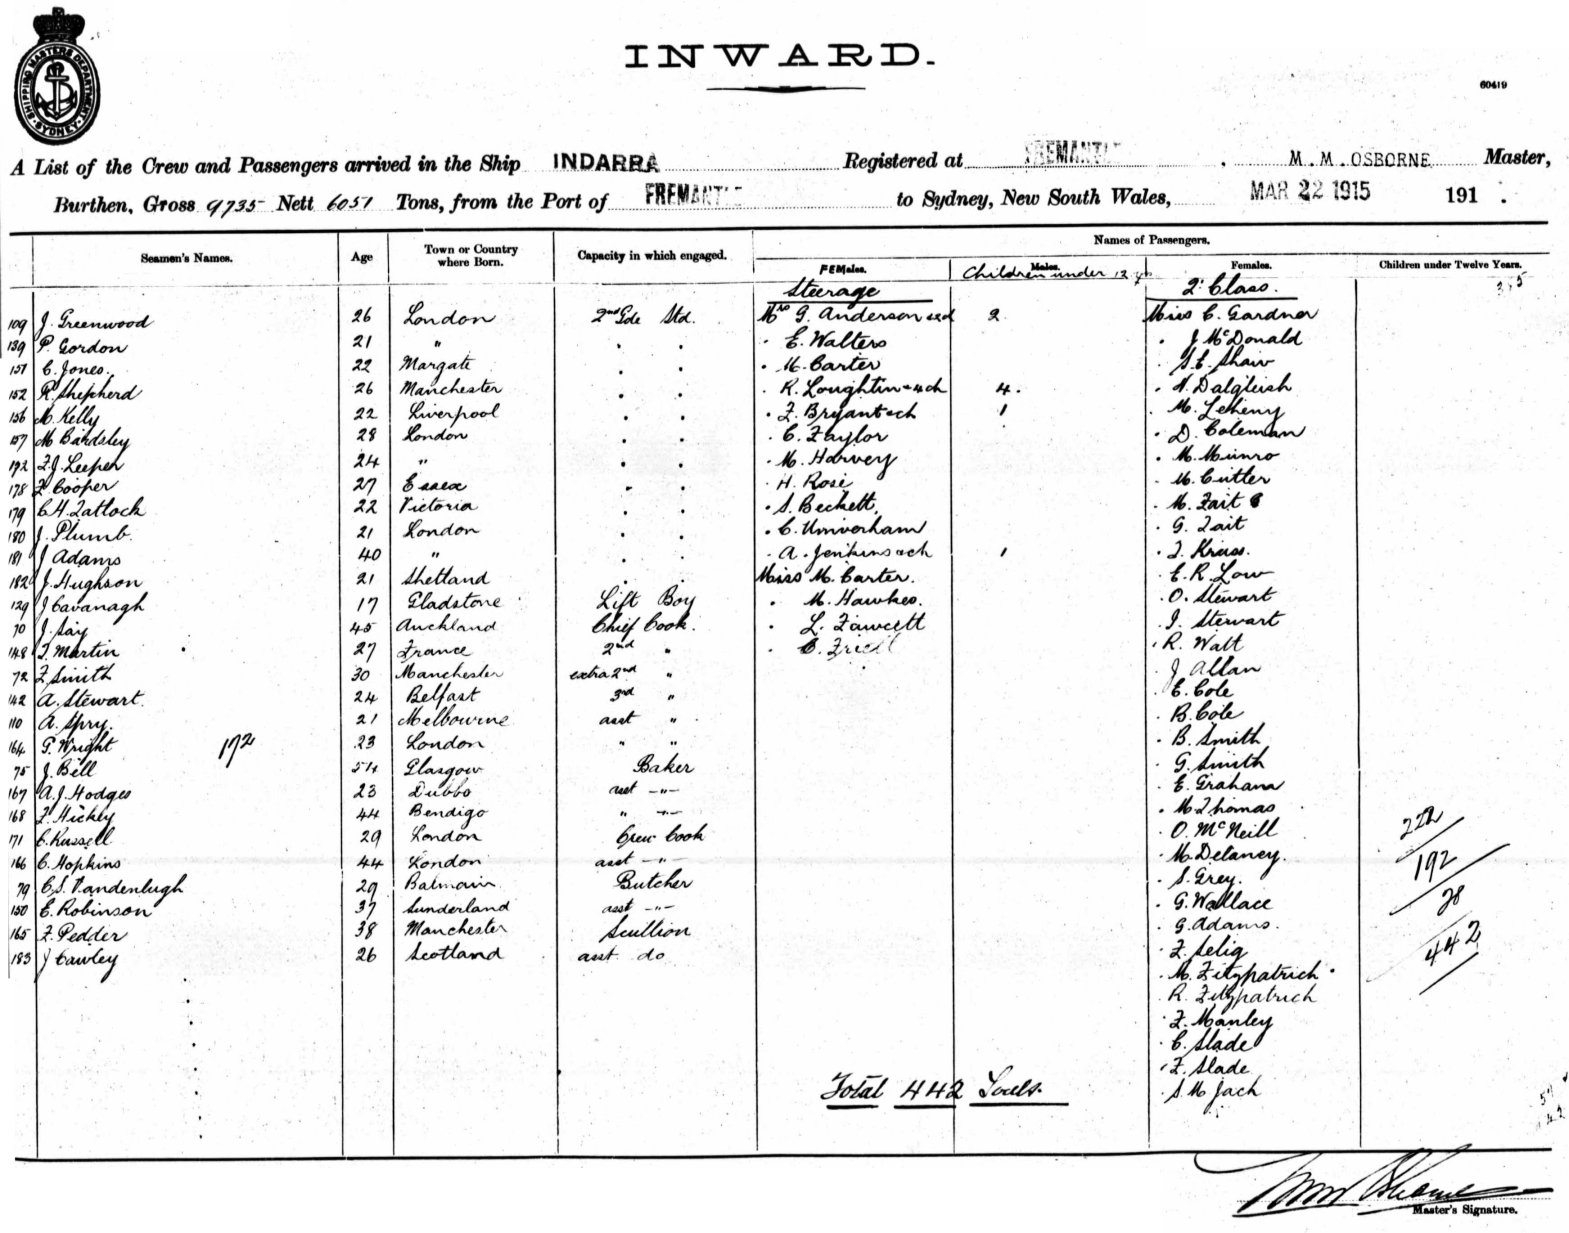 INWARD.
SHIPPING MASTERS DEPARTMENT SYDNEY
60419
A List of the Crew and Passengers arrived in the Ship INDARRA Registered at FREMANTLE M. M. OSBORNE Master,
Burthen, Gross 9735 Nett 6051 Tons, from the Port of FREMANTLE to Sydney, New South Wales, MAR 22 1915 191 .
Seamen's Names. Age Town or Country where Born. Capacity in which engaged. Names of Passengers.
FEMales. Males. Children under 12 Females. Children under Twelve Years.
Steerage 2' Class.
109 J. Greenwood 26 London 2nd Gde Std. Mrs G. Anderson 2 Miss C. Gardner
139 P. Gordon 21 " . . . E. Walters . J McDonald
151 C. Jones. 22 Margate . . . M. Carter . S. E. Shaw
152 R. Shepherd 26 Manchester . . . R. Loughtin 4 ch 4. . N. Dalgleish
156 M. Kelly 22 Liverpool . . . F. Bryant ch 1 . M. Leheny
157 M Bardsley 28 London . . . C. Taylor . D. Coleman
192 F.J. Leeper 24 " . . . M. Harvey . M. Munro
178 F Cooper 27 Essex . . . H. Rose . M. Cutler
179 C.H. Tatlock 22 Victoria . . . S. Beckett. . M. Tait
180 J. Plumb. 21 London . . . C. Umverham . G. Tait
181 J Adams 40 " . . . A. Jenkins ch 1 . T. Kruss.
182 J. Hughson 21 Shetland . . Miss M. Carter. . E. R. Low
129 J Cavanagh 17 Gladstone Lift Boy . M. Hawkes. . O. Stewart
70 J. Say 45 Auckland Chief Cook. . L. Fawcett . I. Stewart
148 F. Martin 27 France 2nd " . . R. Watt
72 F Smith 30 Manchester extra 2nd " . J Allan
142 A. Stewart. 24 Belfast 3rd " . E. Cole
110 A. Spry. 21 Melbourne asst " . B. Cole
164 G. Wright 172 23 London " " . B. Smith
75 J. Bell 54 Glasgow Baker . G. Smith
167 A. J. Hodges 23 Dubbo asst -"- . E. Graham
168 F. Hickey 44 Bendigo " -"- . M. Thomas
171 C. Russell 29 London Crew Cook . O. McNeill 222
166 C. Hopkins 44 London asst -"- . M. Delaney. 192
79 C. S. Vandenlugh 29 Balmain Butcher . S. Grey.
150 E. Robinson 37 Sunderland asst -"- . G. Wallace 28
165 F. Pedder 38 Manchester Scullion . G. Adams.
183 J Cawley 26 Scotland asst do . F. Selig 442
. M. Fitzpatrick
. R. Fitzpatrick
. F. Manley
. C. Slade
. F. Slade
Total 442 Souls. . S. M Jack
Master's Signature.